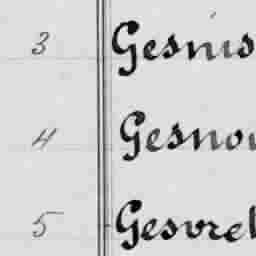 3 Gesnis
4 Gesnou
5 Gesvrel